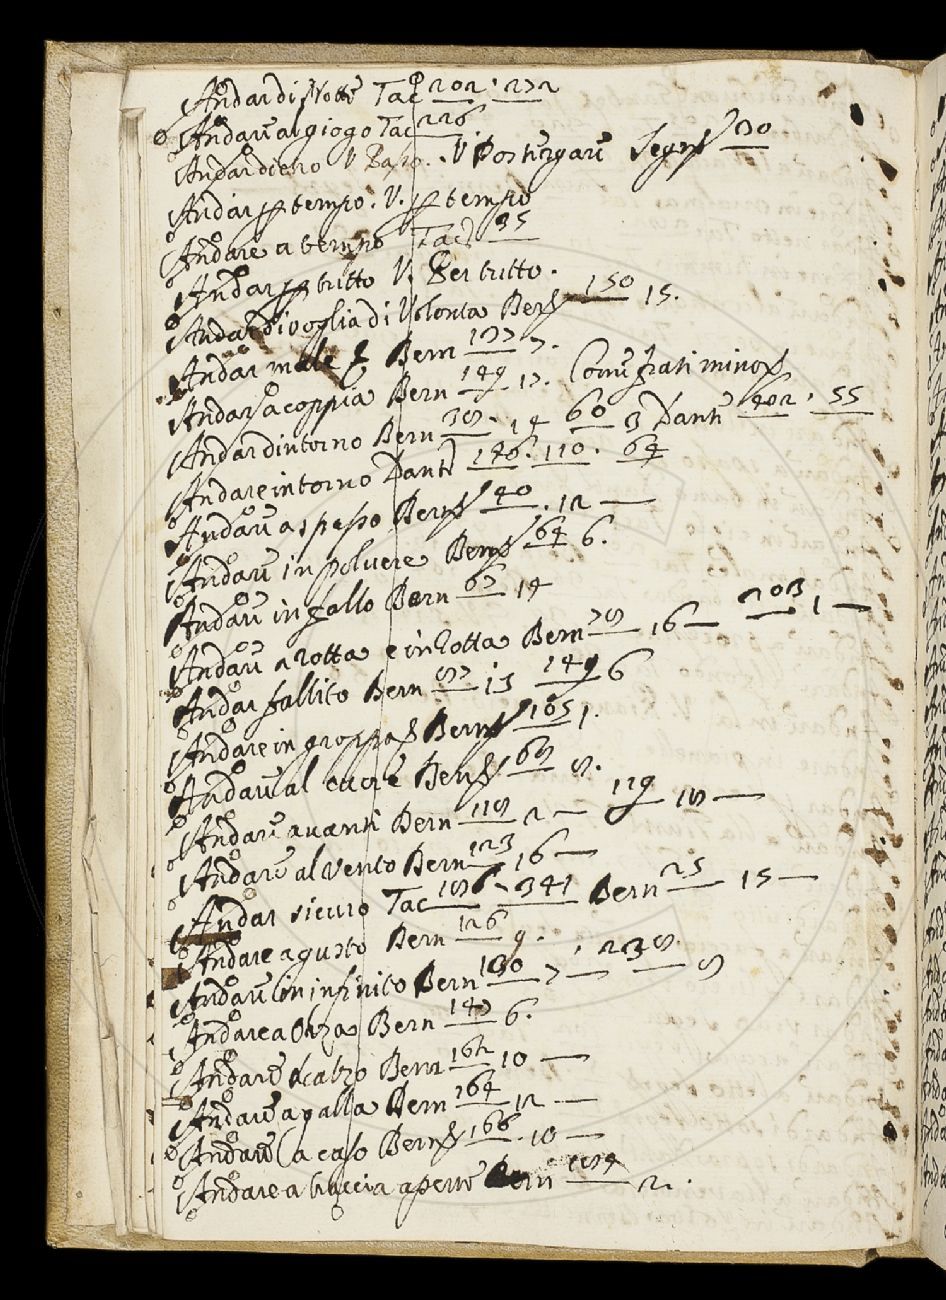 Andar di Notte Tac 202 · 272
Andare al giogo Tac 226
Andar dietro V Basso. V Postergare Segn 30
Andar p tempo. V. p tempo
Andare a tempo Tac 35
Andar p tutto V. Per tutto.
Andar di voglia di Volonta Bern 150 15.
Andar male Bern 137 7.
Andar a coppia Bern 149 17. Come frati minori
Andar dintorno Bern 38. 14 60 3 Dante 402 · 55
Andare intorno Dante 146. 110. 64
Andare a spasso Bern 40. 12 —
Andare in polvere Bern 64 6.
Andare in fallo Bern 67 14
Andare a rotta e in rotta Bern 78 16 — 203 1 —
Andar fallito Bern 87 13 149 6
Andare in groppa Bern 165 1.
Andare al cuore Bern 68 8.
Andare avanti Bern 118 2 — 119 18 —
Andare al vento Bern 123 16 —
Andar sicuro Tac 186 · 341 Bern 25 15 —
Andare a gusto Bern 126 9.
Andare in infinito Bern 130 7 — 238 8
Andare a Bern 147 6.
Andare scalzo Bern 162 10 —
Andare a galla Bern 164 12 —
Andare a caso Bern 166. 10 —
Andare a braccia aperte Bern 2.